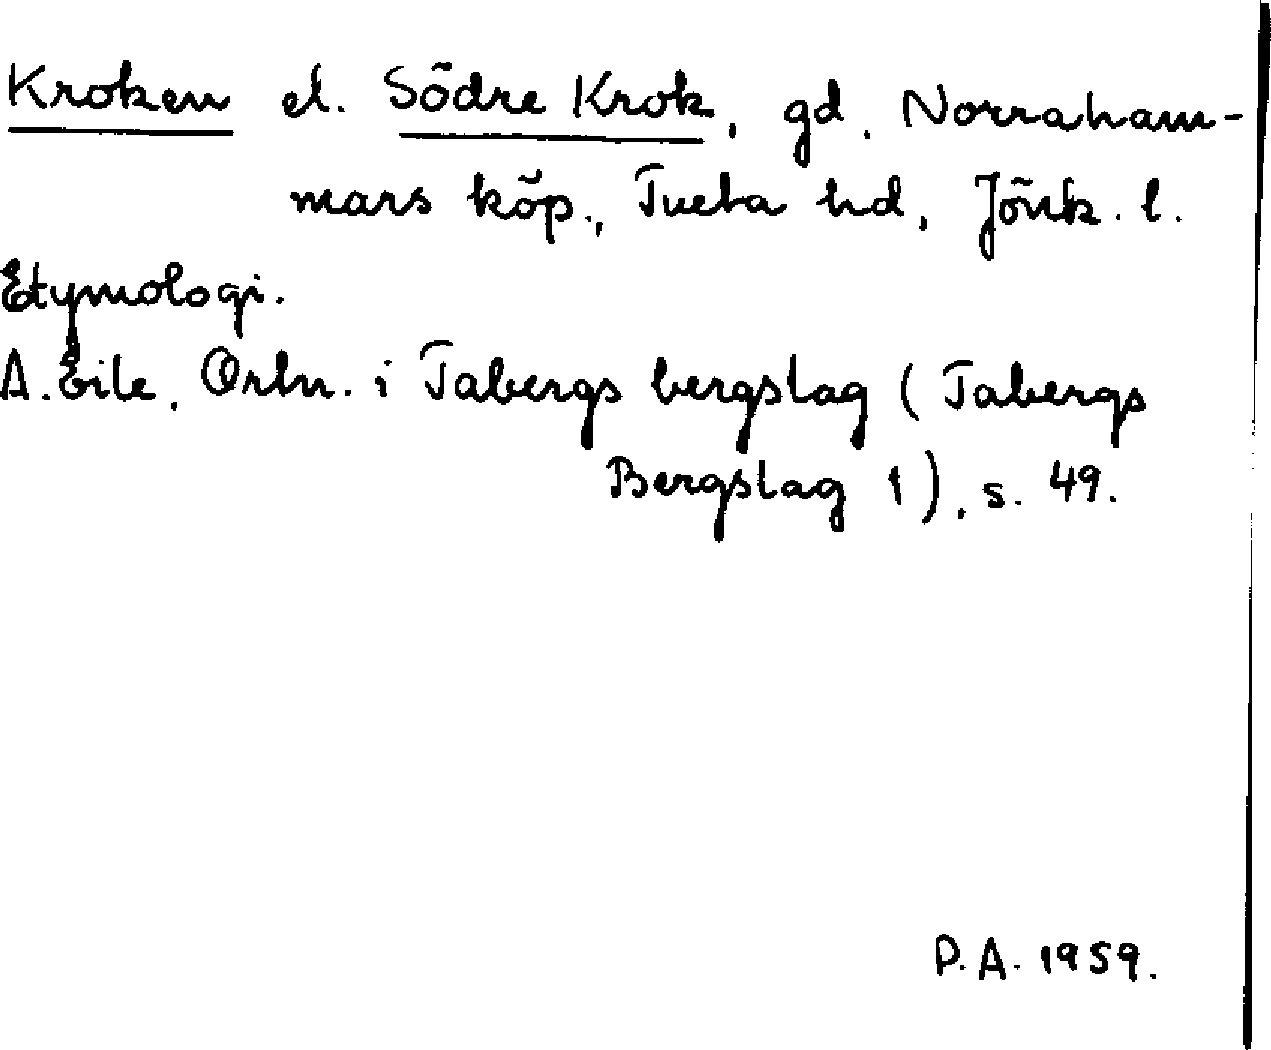 Kroken el. Södre Krok, gd, Norraham-
mars köp., Tveta hd, Jönk. l.
Etymologi.
A. Eile, Ortn. i Tabergs bergslag (Tabergs
Bergslag 1), s. 49.
P. A. 1959.